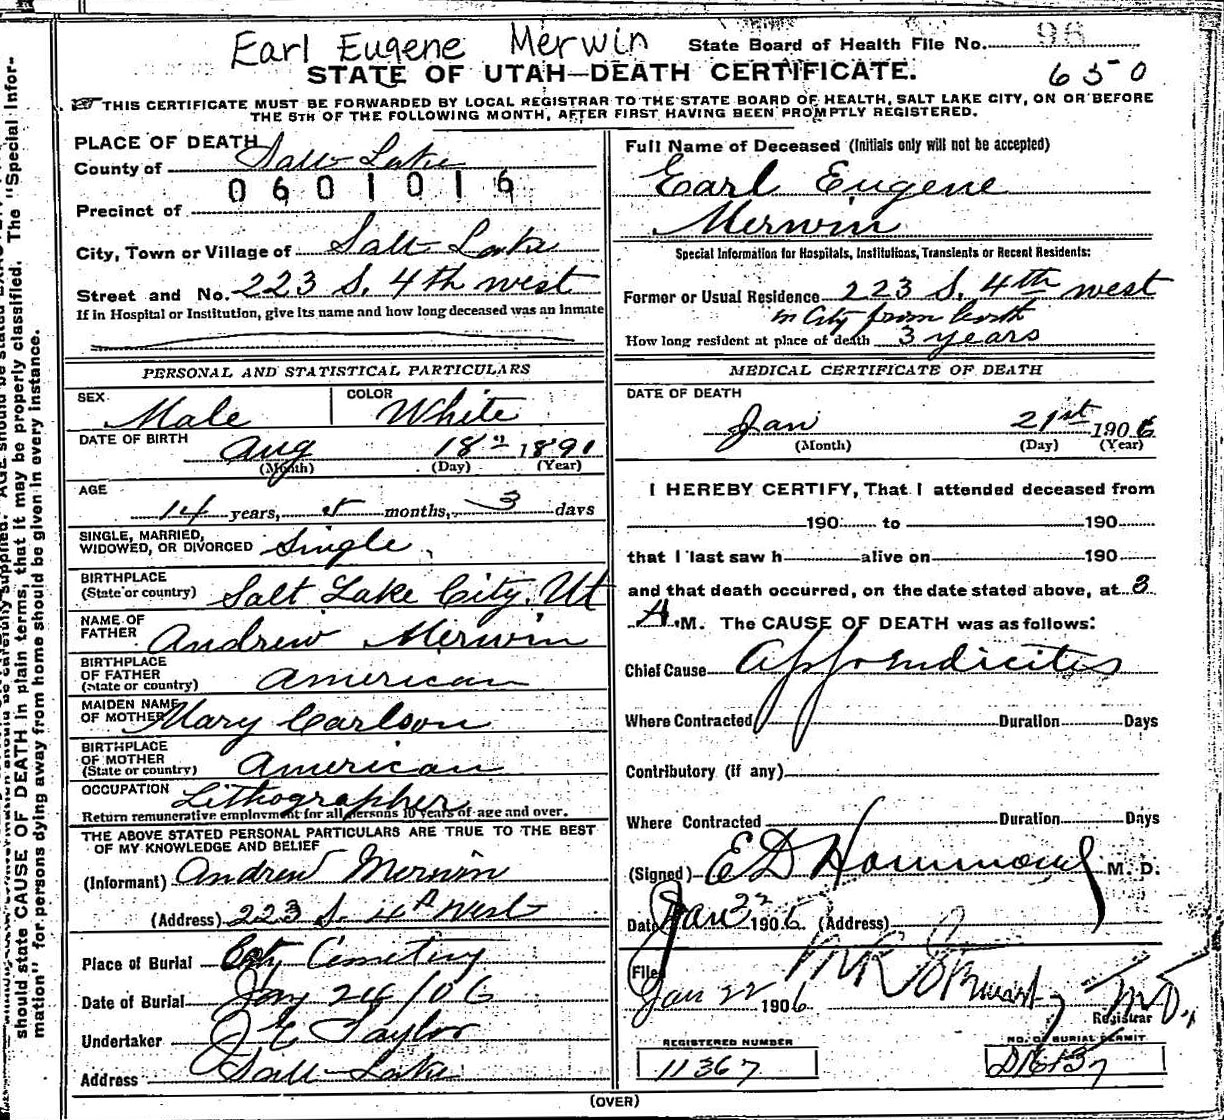 Earl Eugene Merwin State Board of Health File No. 96
STATE OF UTAH—DEATH CERTIFICATE. 650
THIS CERTIFICATE MUST BE FORWARDED BY LOCAL REGISTRAR TO THE STATE BOARD OF HEALTH, SALT LAKE CITY, ON OR BEFORE
THE 5TH OF THE FOLLOWING MONTH, AFTER FIRST HAVING BEEN PROMPTLY REGISTERED.
PLACE OF DEATH
County of Salt Lake
0601016
Precinct of
City, Town or Village of Salt Lake
Street and No. 223 S. 4th west
If in Hospital or Institution, give its name and how long deceased was an inmate
PERSONAL AND STATISTICAL PARTICULARS
SEX Male COLOR White
DATE OF BIRTH Aug 18 1891
(Month) (Day) (Year)
AGE
14 years, 5 months, 3 days
SINGLE, MARRIED,
WIDOWED, OR DIVORCED Single
BIRTHPLACE
(State or country) Salt Lake City, Ut
NAME OF
FATHER Andrew Merwin
BIRTHPLACE
OF FATHER
(State or country) American
MAIDEN NAME
OF MOTHER Mary Carlson
BIRTHPLACE
OF MOTHER
(State or country) American
OCCUPATION Lithographer
Return remunerative employment for all persons 10 years of age and over.
THE ABOVE STATED PERSONAL PARTICULARS ARE TRUE TO THE BEST
OF MY KNOWLEDGE AND BELIEF
(Informant) Andrew Merwin
(Address) 223 S. 4th West
Place of Burial City Cemetery
Date of Burial Jany 24/06
Undertaker J E Taylor
Address Salt Lake
Full Name of Deceased (Initials only will not be accepted)
Earl Eugene
Merwin
Special Information for Hospitals, Institutions, Transients or Recent Residents:
Former or Usual Residence 223 S. 4th west
in City from birth
How long resident at place of death 3 years
MEDICAL CERTIFICATE OF DEATH
DATE OF DEATH
Jan 21st 1906
(Month) (Day) (Year)
I HEREBY CERTIFY, That I attended deceased from
190 to 190
that I last saw h alive on 190
and that death occurred, on the date stated above, at 3
A.M. The CAUSE OF DEATH was as follows:
Chief Cause Appendicitis
Where Contracted Duration Days
Contributory (if any)
Where Contracted Duration Days
(Signed) E D Hammond M. D.
Date Jan 22 1906 (Address)
Filed
Jan 22 1906
Registrar
REGISTERED NUMBER NO. OF BURIAL PERMIT
11367
(OVER)
should state CAUSE OF DEATH in plain terms, that it may be properly classified. The "Special Infor-
mation" for persons dying away from home should be given in every instance.